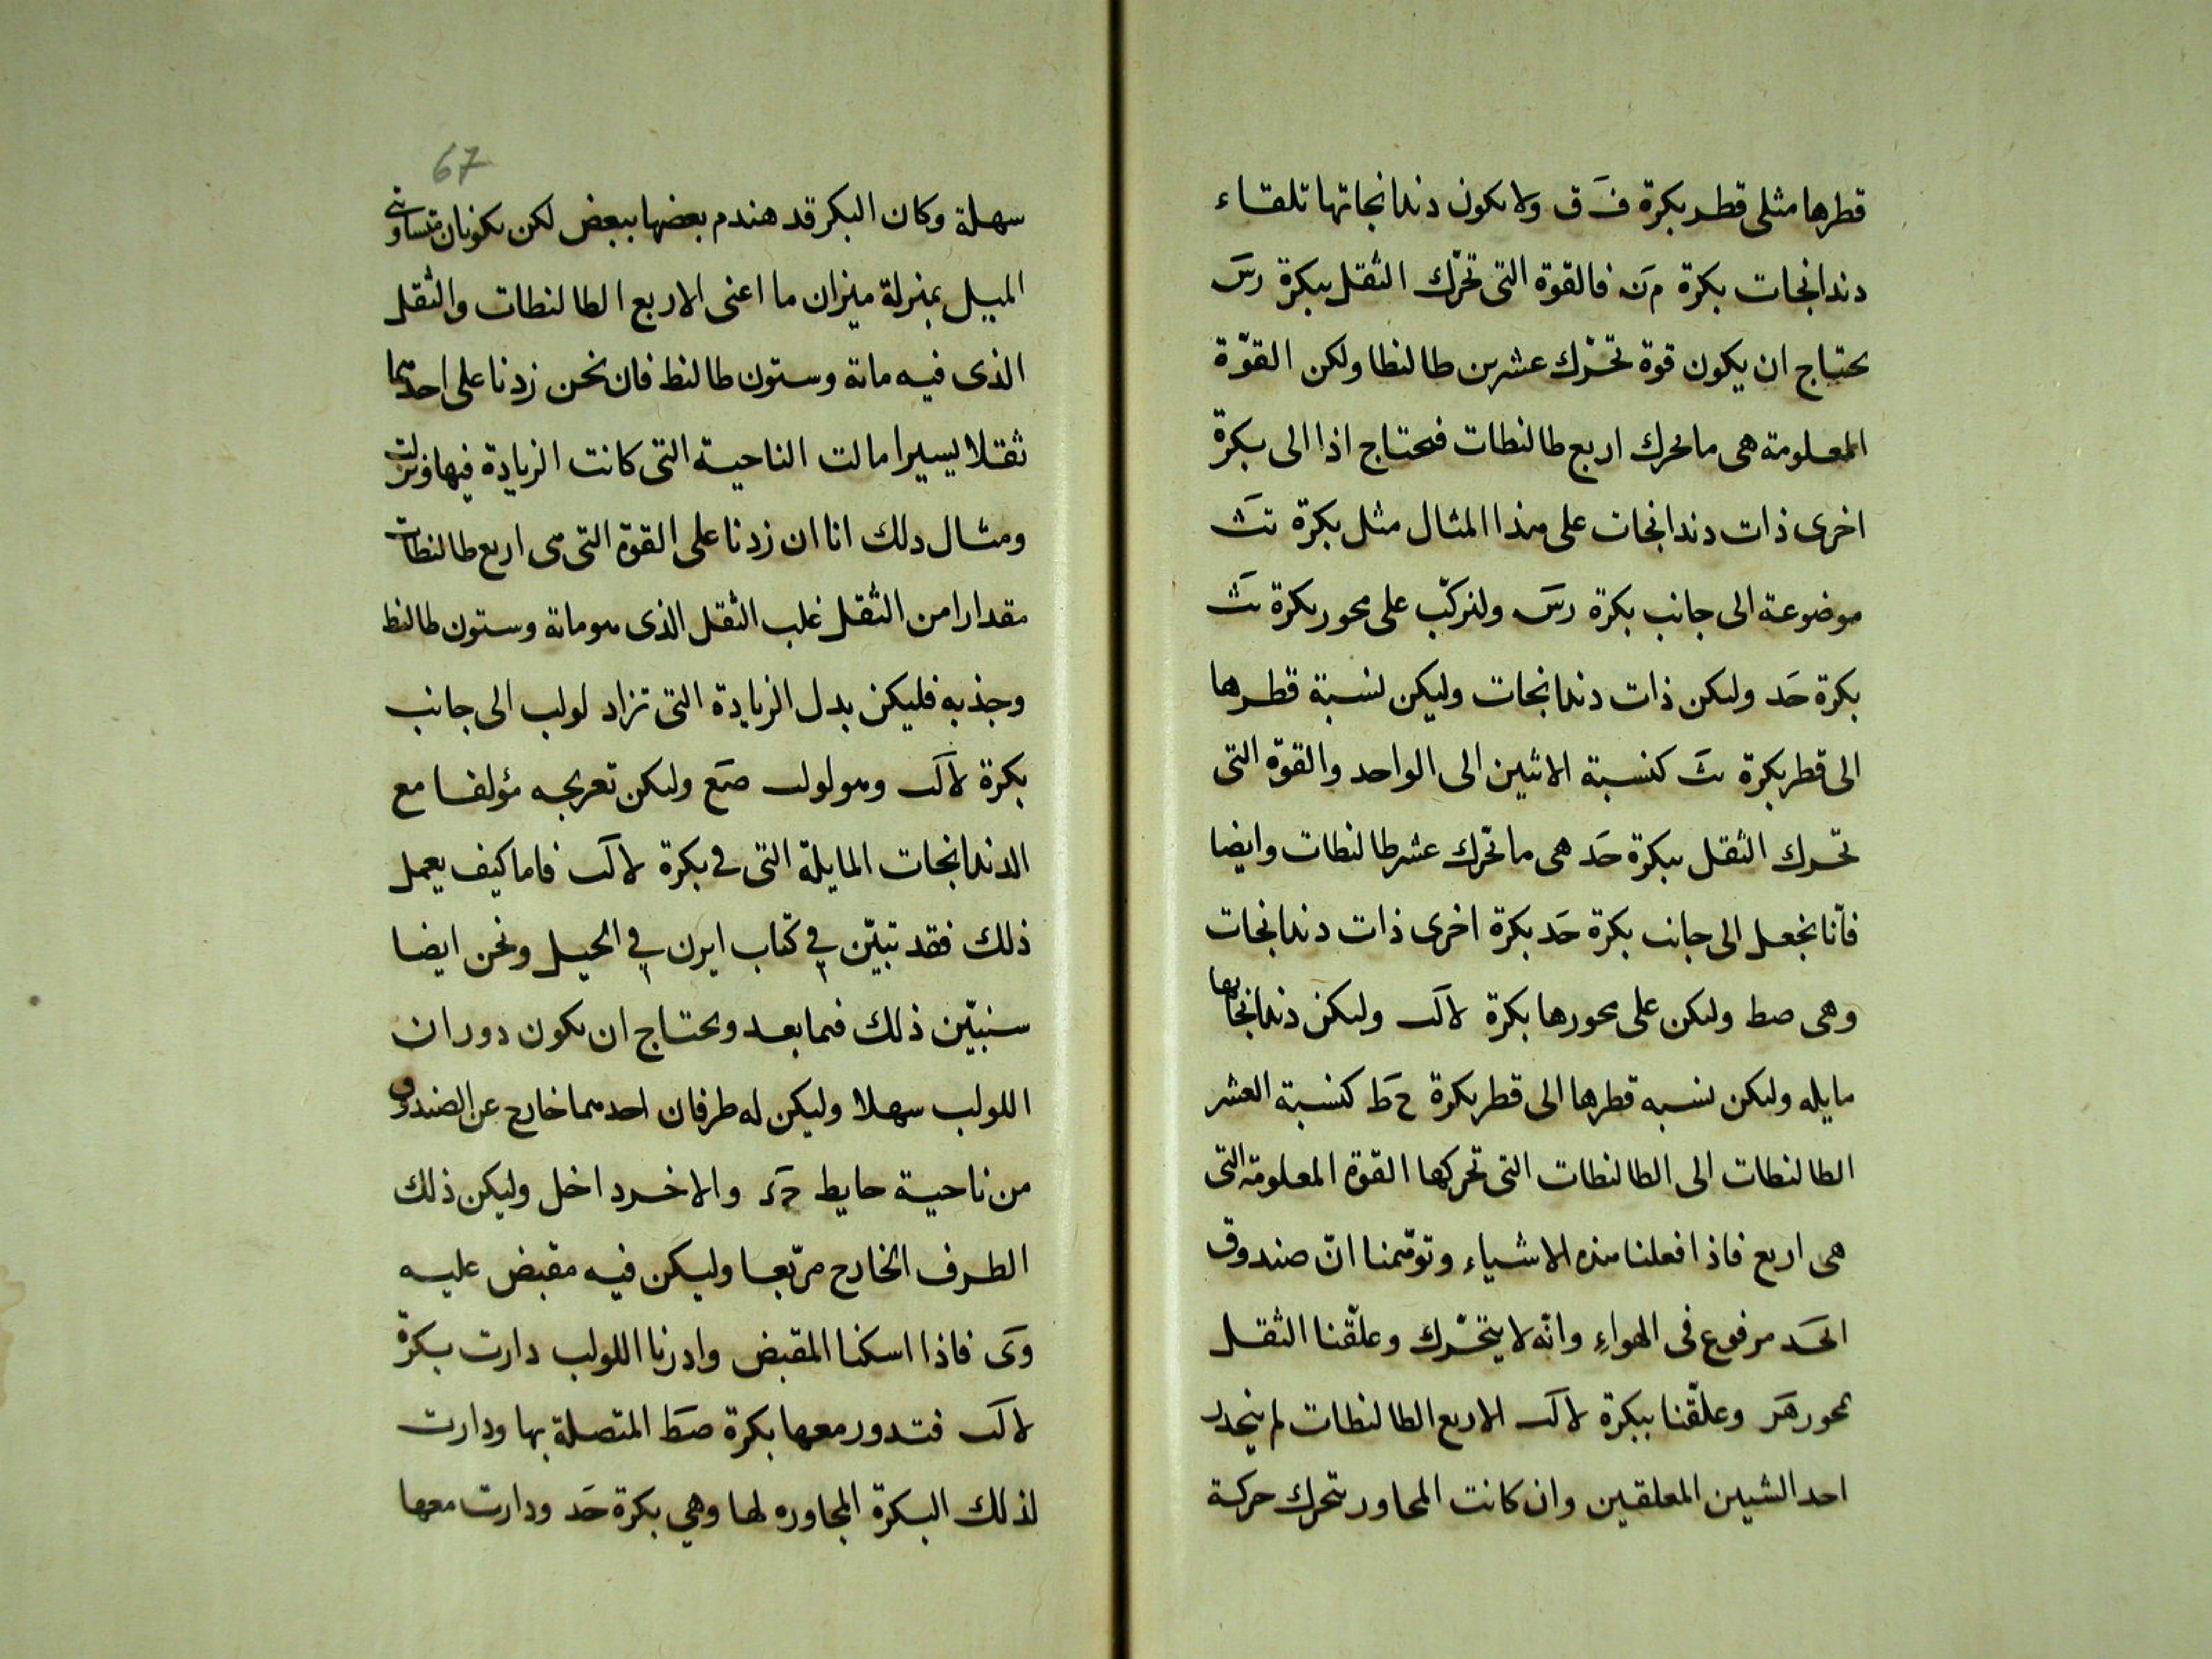 قطرها مثلى قطر بكرة ف ق ولا يكون دندانجاتها تلقاء
دندانجات بكرة م ن فالقوة التى تحرّك الثقل ببكرة رس
يحتاج ان يكون قوة تحرّك عشرين طالنطا ولكن القوّة
المعلومة هى ما يحرك اربع طالنطات فيحتاج اذا الى بكرة
اخرى ذات دندانجات على هذا المثال مثل بكرة تث
موضوعة الى جانب بكرة رس ولنركّب على محور بكرة تث
بكرة خد وليكن ذات دندانجات وليكن نسبة قطرها
الى قطر بكرة تث كنسبة الاثنين الى الواحد والقوّة التى
تحرك الثقل ببكرة خد هى ما تحرّك عشر طالنطات وايضا
فأنا نجعل الى جانب بكرة خد بكرة اخرى ذات دندانجات
وهى صط وليكن على محورها بكرة لاك وليكن دندانجاتها
مايله وليكن نسبه قطرها الى قطر بكرة ح ط كنسبة العشر
الطالنطات الى الطالنطات التى تحركها القوة المعلومة التى
هى اربع فاذا فعلنا هذه الاشياء وتوهّمنا انّ صندوق
ا ب ج د مرفوع فى الهواء وانّه لا يتحّرك وعلّقنا الثقل
بمحور هر وعلّقنا ببكرة لاك الاربع الطالنطات لم ينحدر
احد الشيين المعلقين وان كانت المحاور تتحرك حركة
67
سهلة وكان البكر قد هندم بعضها ببعض لكن يكونان متساوى
الميل بمنزلة ميزان ما اعنى الاربع الطالنطات والثقل
الذى فيه مائة وستون طالنط فان نحن زدنا على احدهما
ثقلا يسيرا مالت الناحية التى كانت الزيادة فيها ونزلت
ومثال ذلك انا ان زدنا على القوة التى هى اربع طالنطات
مقدارا من الثقل غلب الثقل الذى هو مائة وستون طالنط
وجذبه فليكن بدل الزيادة التى تزاد لولب الى جانب
بكرة لاك وهو لولب صع وليكن تعريجه مؤلفا مع
الدندانجات المايلة التى فى بكرة لاك فاما كيف يعمل
ذلك فقد تبيّن فى كتاب ايرن فى الحيل ونحن ايضا
سنبيّن ذلك فيما بعد ويحتاج ان يكون دوران
اللولب سهلا وليكن له طرفان احدهما خارج عن الصندوق
من ناحية حايط ج د والاخر داخل وليكن ذلك
الطرف الخارج مربّعا وليكن فيه مقبض عليه
وى فاذا اسكنا المقبض وادرنا اللولب دارت بكرة
لاك فتدور معها بكرة صط المتصلة بها ودارت
لذلك البكرة المجاوره لها وهي بكرة خد ودارت معها